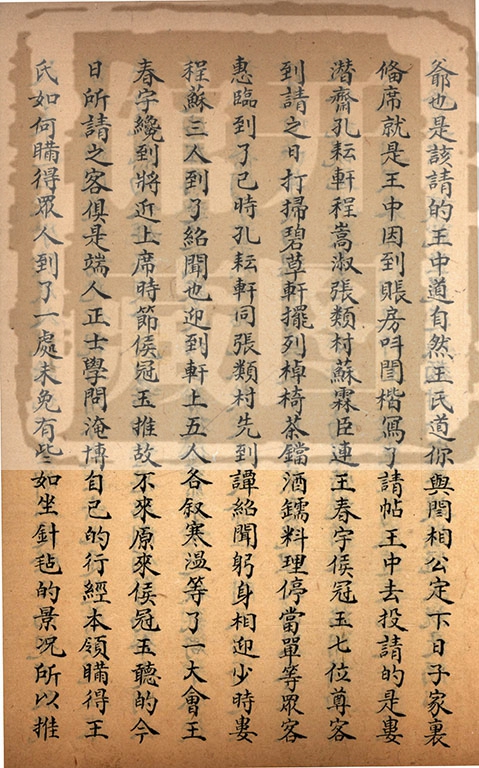 爺也是該請的王中道自然王氏道你與閻相公定下日子家裏
俻席就是王中因到賬房呌閆楷寫了請帖王中去投請的是婁
潜齋孔耘軒程嵩淑張類村蘇霖臣連王春宇侯冠玉七位尊客
到請之日打掃碧草軒擺列棹椅茶鐺酒鐺料理停當單等眾客
惠臨到了巳時孔耘軒同張類村先到譚紹聞躬身相迎少時婁
程蘇三人到了紹聞也迎到軒上五人各叙寒溫等了一大會王
春宇纔到將近上席時節侯冠玉推故不來原來侯冠玉聽的今
日所請之客俱是端人正士學問淹博自已的行經本領瞞得王
氏如何瞞得眾人到了一處未免有些如坐針毡的景况所以推